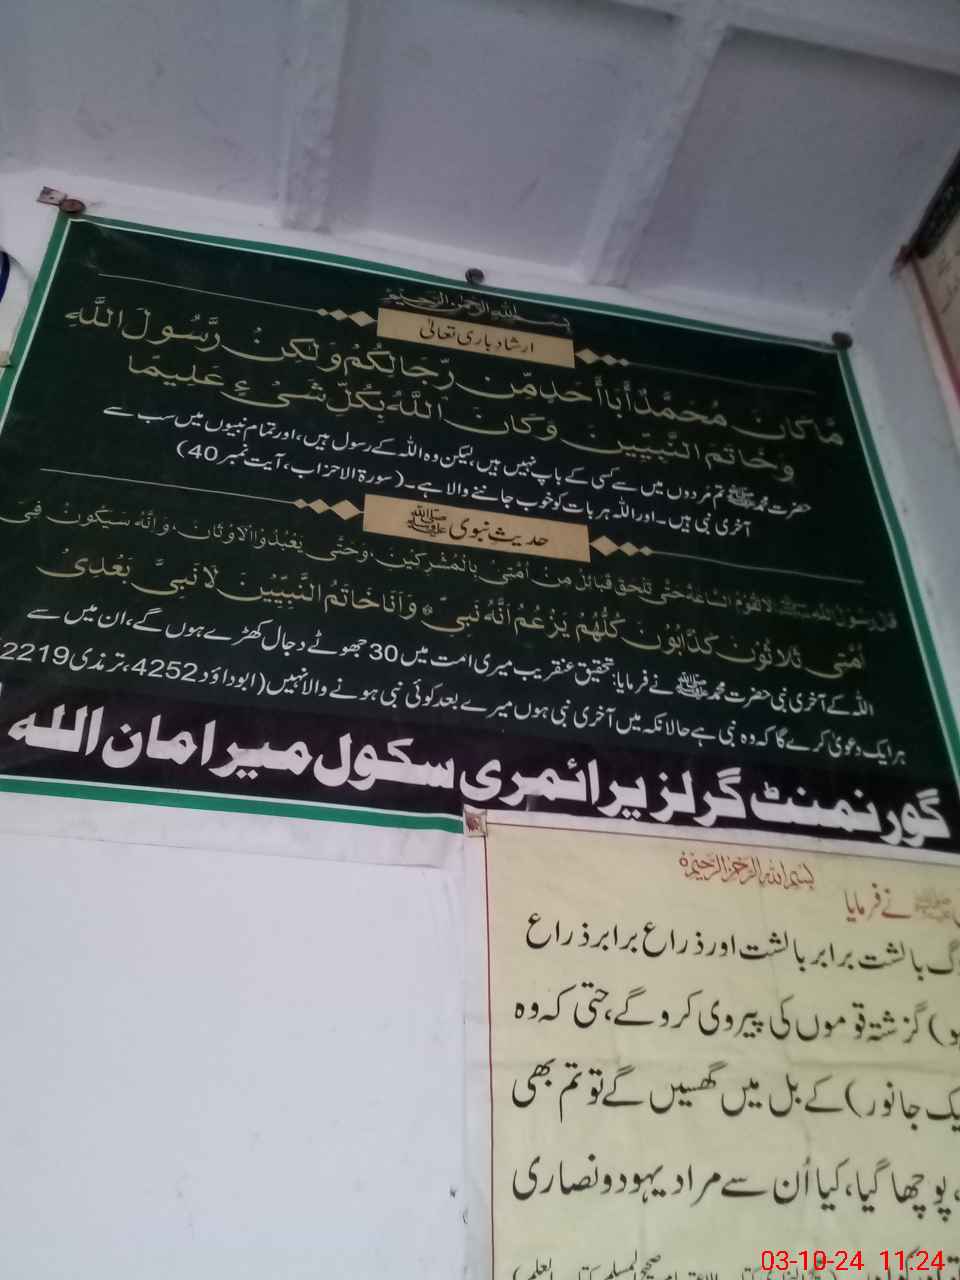 بسم الله الرحمن الرحيم
ارشاد باری تعالیٰ
مَّا كَانَ مُحَمَّدٌ أَبَا أَحَدٍ مِّن رِّجَالِكُمْ وَلَٰكِن رَّسُولَ اللَّهِ
وَخَاتَمَ النَّبِيِّينَ وَكَانَ اللَّهُ بِكُلِّ شَيْءٍ عَلِيمًا
حضرت محمد ﷺ تم مَردوں میں سے کسی کے باپ نہیں ہیں، لیکن وہ اللہ کے رسول ہیں، اور تمام نبیوں میں سب سے
آخری نبی ہیں ۔ اور اللہ ہر بات کو خوب جاننے والا ہے۔ (سورۃ الاحزاب، آیت نمبر 40)
حدیثِ نبوی ﷺ
قال رسول الله ﷺ لَا تَقُوْمُ السَّاعَةُ حَتّٰى تَلْحَقَ قَبَائِلُ مِنْ اُمَّتِىْ بِالْمُشْرِكِيْنَ، وَحَتّٰى يَعْبُدُوا الْاَوْثَانَ، وَاَنَّهُ سَيَكُوْنُ فِىْ
اُمَّتِىْ ثَلَاثُوْنَ كَذَّابُوْنَ كُلُّهُمْ يَزْعُمُ اَنَّهُ نَبِىٌّ وَاَنَا خَاتَمُ النَّبِيِّيْنَ لَا نَبِىَّ بَعْدِىْ
اللہ کے آخری نبی حضرت محمد ﷺ نے فرمایا: تحقیق عنقریب میری امت میں 30 جھوٹے دجال کھڑے ہوں گے، ان میں سے
ہر ایک دعویٰ کرے گا کہ وہ نبی ہے حالانکہ میں آخری نبی ہوں میرے بعد کوئی نبی ہونے والا نہیں (ابو داؤد 4252، ترمذی 2219
گورنمنٹ گرلز پرائمری سکول میر امان اللہ
بسم الله الرحمن الرحيم
ﷺ نے فرمایا
بالشت برابر بالشت اور ذراع برابر ذراع
) گزشتہ قوموں کی پیروی کرو گے، حتیٰ کہ وہ
جانور) کے بل میں گھسیں گے تو تم بھی
پوچھا گیا، کیا اُن سے مراد یہود و نصاریٰ
03-10-24 11:24